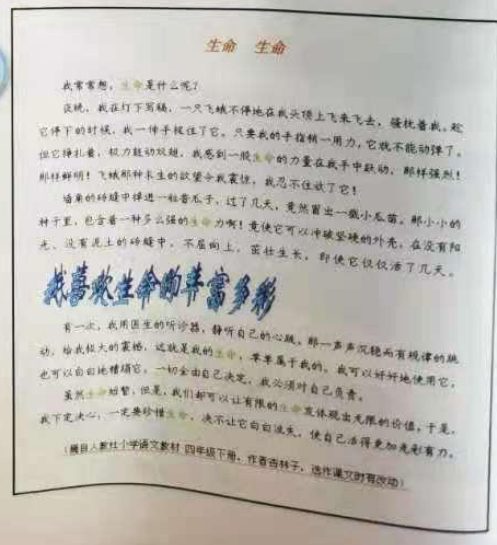 生命 生命
我常常想，生命是什么呢？
夜晚，我在灯下写稿，一只飞蛾不停地在我头顶上飞来飞去，骚扰着我。趁
它停下的时候，我一伸手捉住了它。只要我的手指稍一用力，它就不能动弹了。
但它挣扎着，极力鼓动双翅，我感到一股生命的力量在我手中跃动，那样强烈！
那样鲜明！飞蛾那种求生的欲望令我震惊，我忍不住放了它！
墙角的砖缝中掉进一粒香瓜子，过了几天，竟然冒出一截小瓜苗。那小小的
种子里，包含着一种多么强的生命力啊！竟使它可以冲破坚硬的外壳，在没有阳
光、没有泥土的砖缝中，不屈向上，茁壮生长，即使它仅仅活了几天。
我喜欢生命的丰富多彩
有一次，我用医生的听诊器，静听自己的心跳，那一声声沉稳而有规律的跳
动，给我极大的震撼，这就是我的生命，单单属于我的。我可以好好地使用它，
也可以白白地糟蹋它。一切全由自己决定，我必须对自己负责。
虽然生命短暂，但是，我们却可以让有限的生命发体现出无限的价值。于是，
我下定决心，一定要珍惜生命，决不让它白白流失，使自己活得更加光彩有力。
（摘自人教社小学语文教材 四年级下册，作者杏林子，选作课文时有改动）